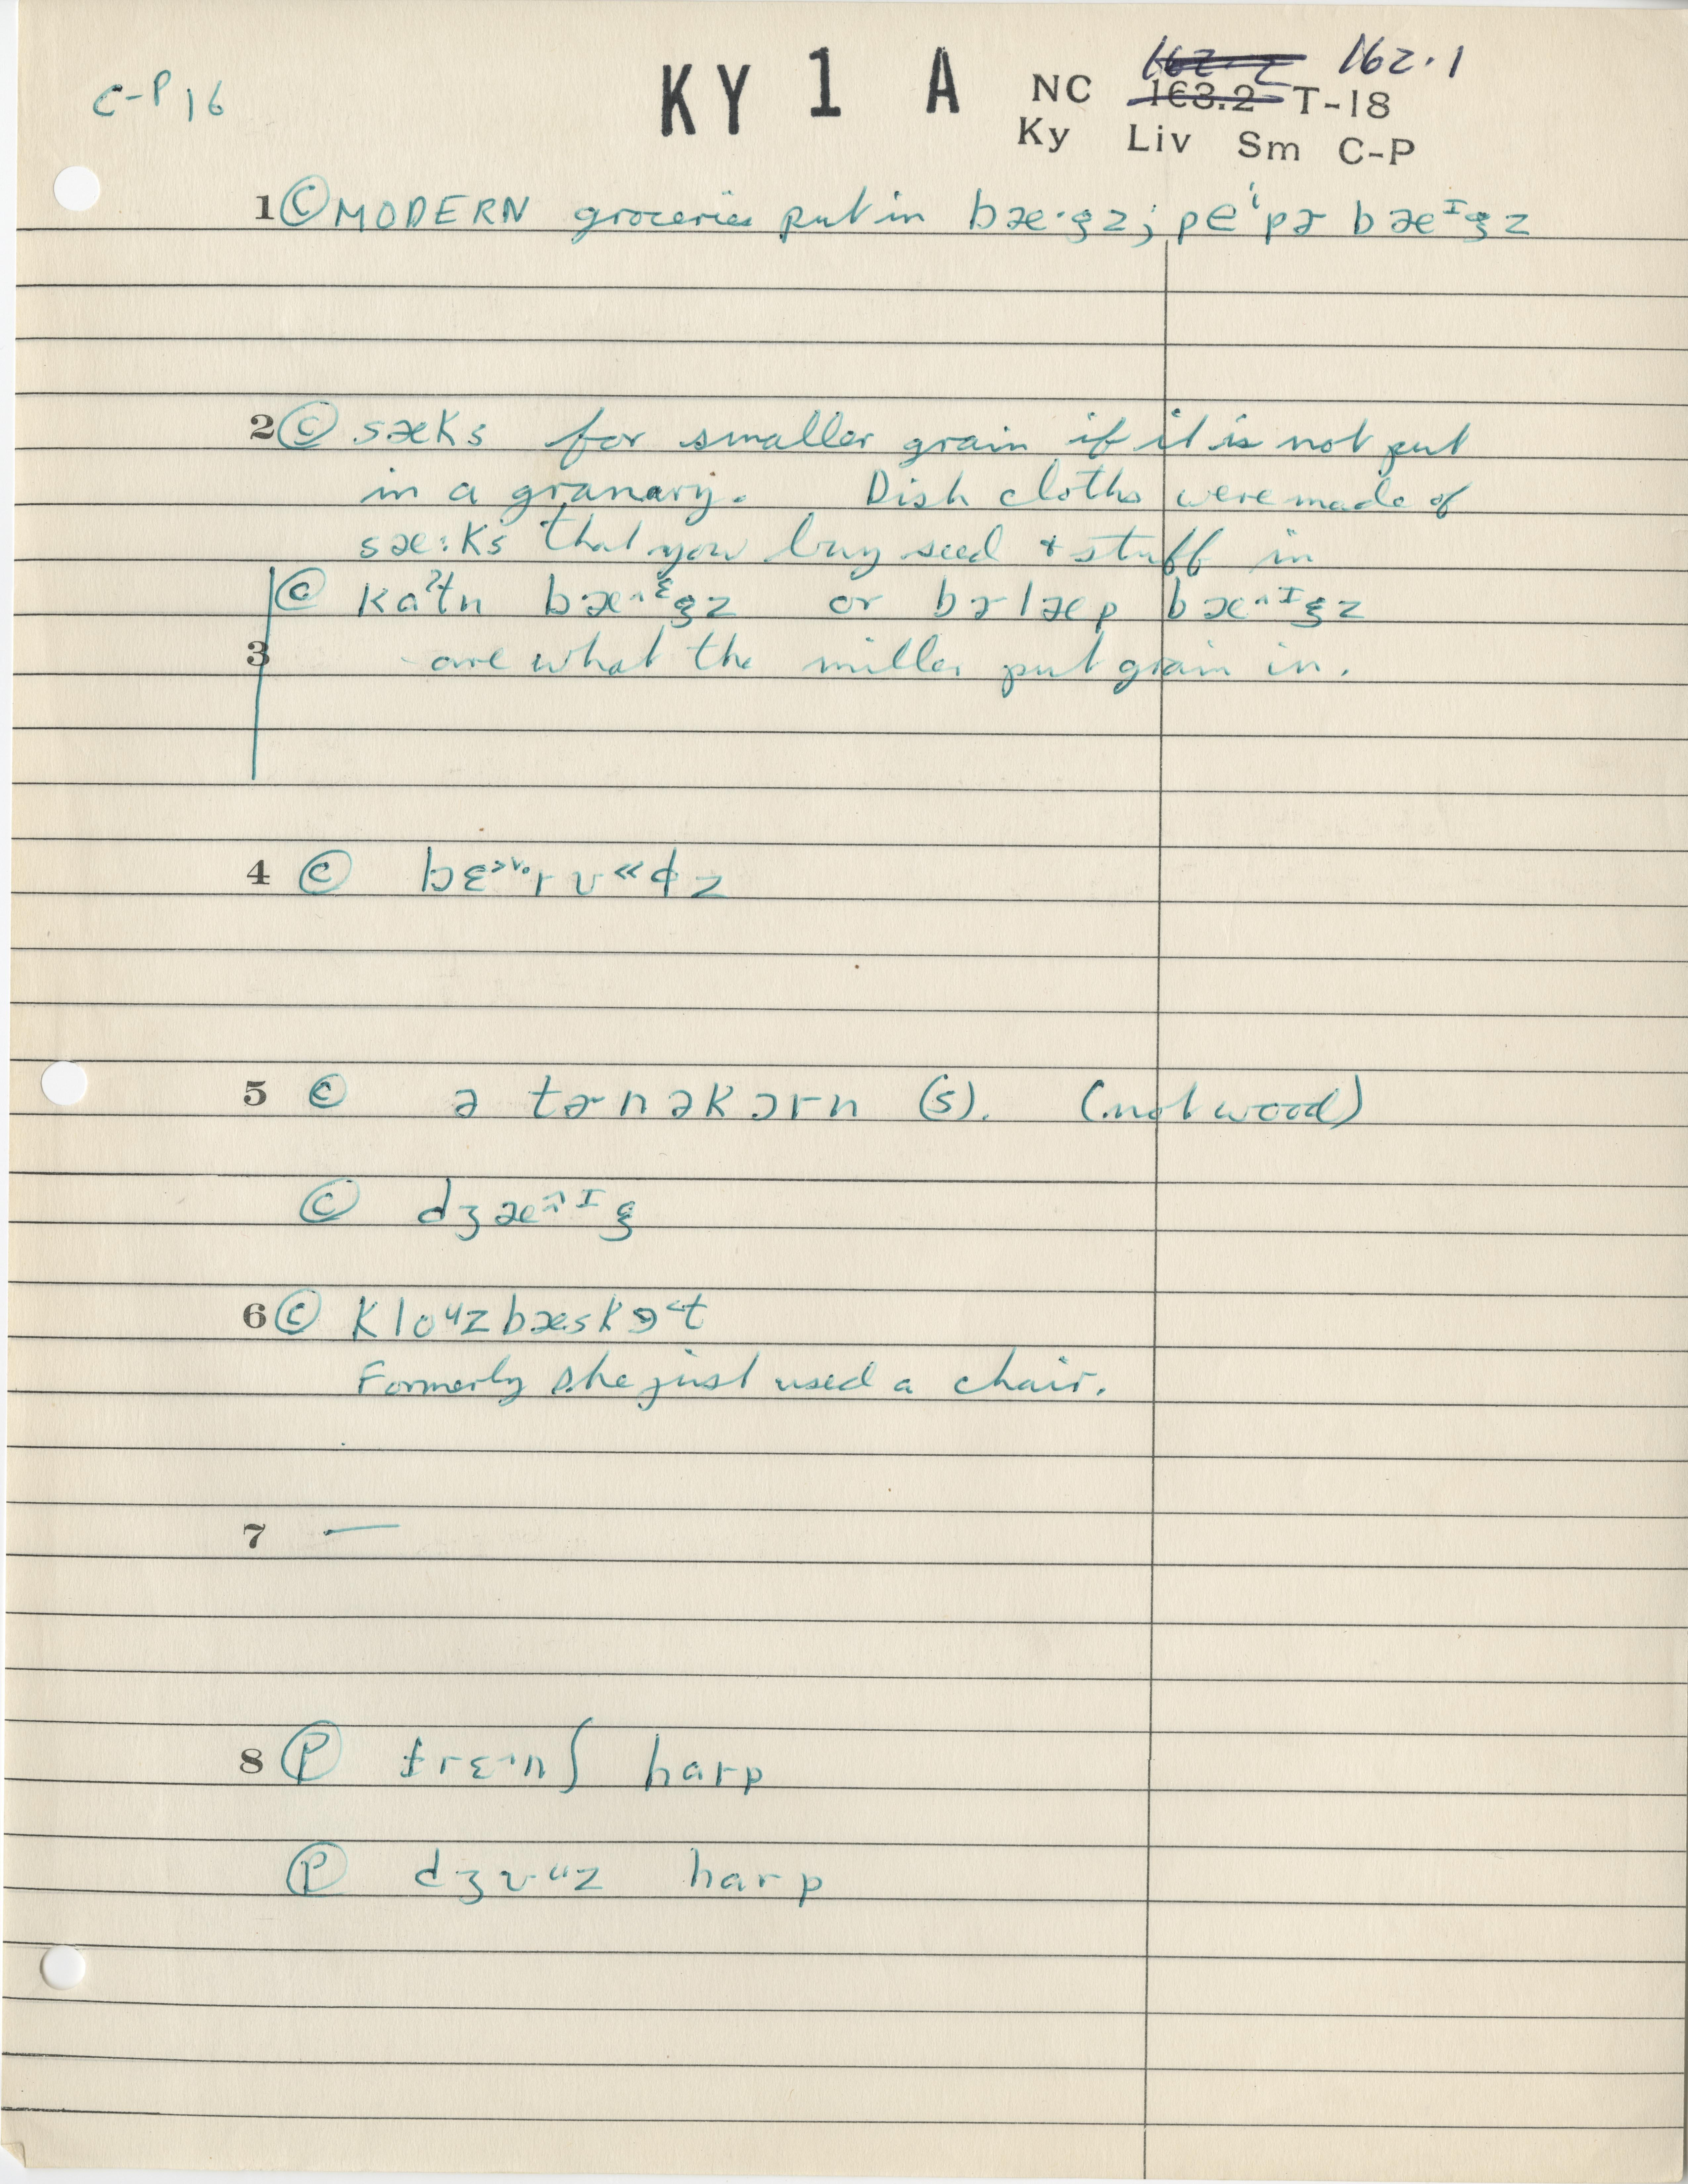 C-P 16
KY 1 A
162.2 162.1
NC 163.2 T-18
Ky Liv Sm C-P
1 Ⓒ MODERN groceries put in bæ·g̬z; peⁱpɚ bæᶦg̬z
2 Ⓒ sæks for smaller grain if it is not put
in a granary. Dish cloths were made of
sæːks that you buy seed + stuff in
Ⓒ kaˀtn bæ^ᵋg̬z or bɚlæp bæ^ᶦg̬z
3 are what the miller put grain in.
4 Ⓒ
5 Ⓒ ə tɚnəkɔrn (s). (not wood)
Ⓒ dʒæ^ᶦg̬
6 Ⓒ kloᵘzbæskət
Formerly she just used a chair.
7 —
8 Ⓟ trɛ^nʃ harp
Ⓟ dʒʊᵘz harp